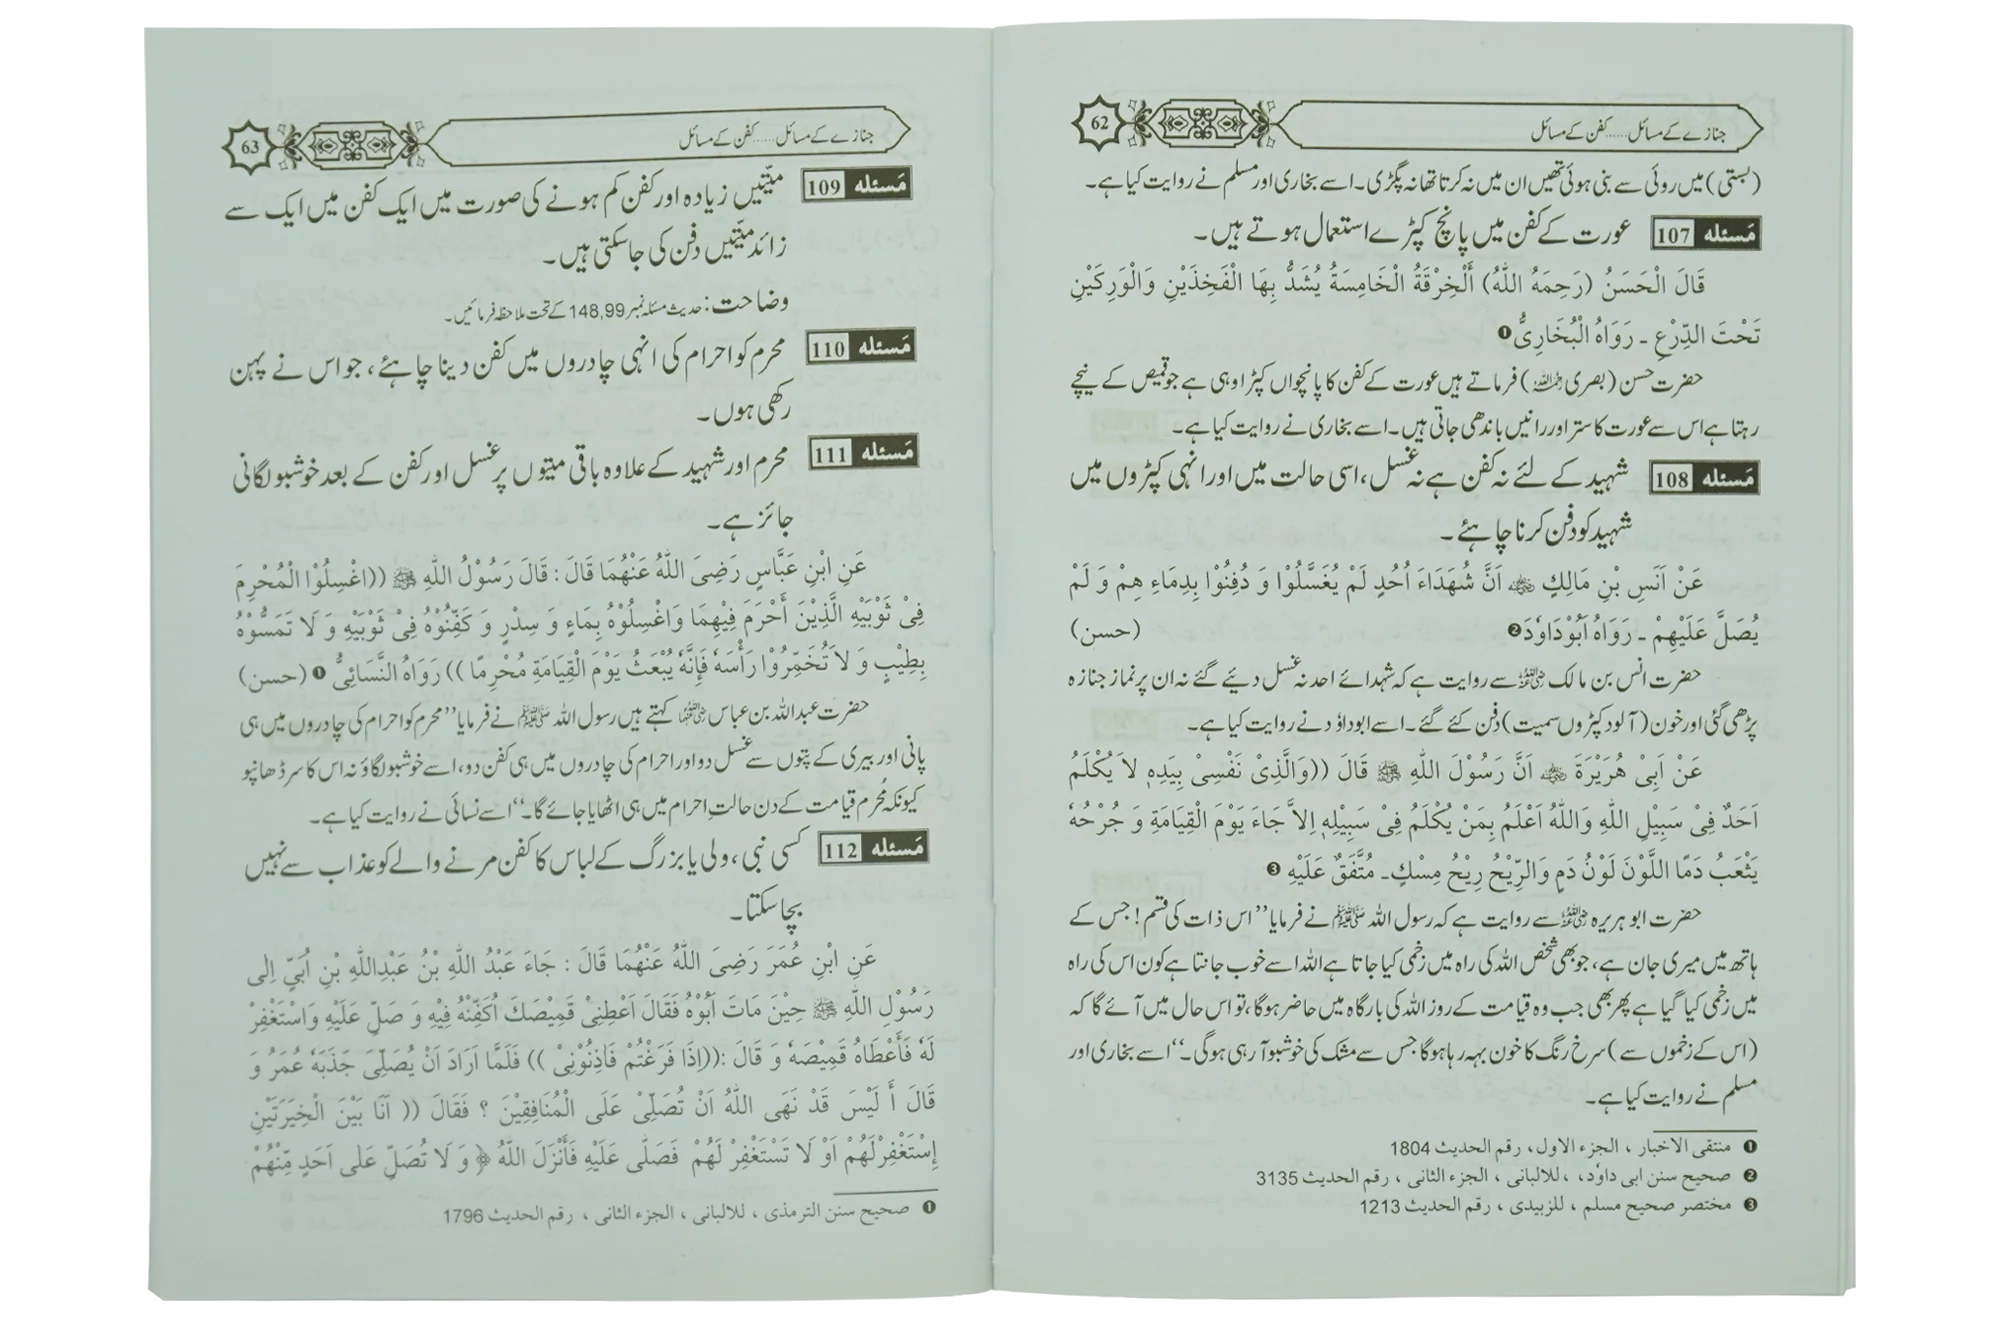 جنازے کے مسائل......کفن کے مسائل
62
(بستی) میں روئی سے بنی ہوئی تھیں ان میں نہ کرتا تھا نہ پگڑی۔ اسے بخاری اور مسلم نے روایت کیا ہے۔
مَسئله 107 عورت کے کفن میں پانچ کپڑے استعمال ہوتے ہیں۔
قَالَ الْحَسَنُ (رَحِمَهُ اللّٰهُ) أَلْخِرْقَةُ الْخَامِسَةُ يُشَدُّ بِهَا الْفَخِذَيْنِ وَالْوَرِكَيْنِ
تَحْتَ الدِّرْعِ ۔ رَوَاهُ الْبُخَارِىُّ ❶
حضرت حسن (بصری رحمہ اللہ) فرماتے ہیں عورت کے کفن کا پانچواں کپڑا وہی ہے جو قمیص کے نیچے
رہتا ہے اس سے عورت کا ستر اور رانیں باندھی جاتی ہیں۔ اسے بخاری نے روایت کیا ہے۔
مَسئله 108 شہید کے لئے نہ کفن ہے نہ غسل، اسی حالت میں اور انہی کپڑوں میں
شہید کو دفن کرنا چاہئے۔
عَنْ اَنَسِ بْنِ مَالِكٍ ؓ اَنَّ شُهَدَاءَ اُحُدٍ لَمْ يُغَسَّلُوْا وَ دُفِنُوْا بِدِمَاءِ هِمْ وَ لَمْ
يُصَلَّ عَلَيْهِمْ ۔ رَوَاهُ اَبُوْدَاوٗدَ ❷ (حسن)
حضرت انس بن مالک ؓ سے روایت ہے کہ شہدائے احد نہ غسل دیئے گئے نہ ان پر نماز جنازہ
پڑھی گئی اور خون (آلود کپڑوں سمیت) دفن کئے گئے۔ اسے ابوداؤد نے روایت کیا ہے۔
عَنْ اَبِىْ هُرَيْرَةَ ؓ اَنَّ رَسُوْلَ اللّٰهِ ﷺ قَالَ ((وَالَّذِىْ نَفْسِىْ بِيَدِهٖ لاَ يُكْلَمُ
اَحَدٌ فِىْ سَبِيلِ اللّٰهِ وَاللّٰهُ اَعْلَمُ بِمَنْ يُكْلَمُ فِىْ سَبِيْلِهٖ اِلاَّ جَاءَ يَوْمَ الْقِيَامَةِ وَ جُرْحُهٗ
يَثْعَبُ دَمًا اللَّوْنَ لَوْنُ دَمٍ وَالرِّيْحُ رِيْحُ مِسْكٍ۔ مُتَّفَقٌ عَلَيْهِ ❸
حضرت ابو ہریرہ ؓ سے روایت ہے کہ رسول اللہ ﷺ نے فرمایا ’’اس ذات کی قسم! جس کے
ہاتھ میں میری جان ہے، جو بھی شخص اللہ کی راہ میں زخمی کیا جاتا ہے اللہ اسے خوب جانتا ہے کون اس کی راہ
میں زخمی کیا گیا ہے پھر بھی جب وہ قیامت کے روز اللہ کی بارگاہ میں حاضر ہوگا، تو اس حال میں آئے گا کہ
(اس کے زخموں سے) سرخ رنگ کا خون بہہ رہا ہوگا جس سے مشک کی خوشبو آ رہی ہوگی۔‘‘ اسے بخاری اور
مسلم نے روایت کیا ہے۔
❶ منتقى الاخبار ، الجزء الاول، رقم الحديث 1804
❷ صحيح سنن ابى داوٗد، ،للالبانى ، الجزء الثانى ، رقم الحديث 3135
❸ مختصر صحيح مسلم ، للزبيدى ، رقم الحديث 1213
جنازے کے مسائل......کفن کے مسائل
63
مَسئله 109 میّتیں زیادہ اور کفن کم ہونے کی صورت میں ایک کفن میں ایک سے
زائد میّتیں دفن کی جاسکتی ہیں۔
وضاحت: حدیث مسئلہ نمبر 148,99 کے تحت ملاحظہ فرمائیں۔
مَسئله 110 محرم کو احرام کی انہی چادروں میں کفن دینا چاہئے، جو اس نے پہن
رکھی ہوں۔
مَسئله 111 محرم اور شہید کے علاوہ باقی میتوں پر غسل اور کفن کے بعد خوشبو لگانی
جائز ہے۔
عَنِ ابْنِ عَبَّاسٍ رَضِىَ اللّٰهُ عَنْهُمَا قَالَ : قَالَ رَسُوْلُ اللّٰهِ ﷺ ((اغْسِلُوْا الْمُحْرِمَ
فِىْ ثَوْبَيْهِ الَّذِيْنَ أَحْرَمَ فِيْهِمَا وَاغْسِلُوْهُ بِمَاءٍ وَ سِدْرٍ وَ كَفِّنُوْهُ فِىْ ثَوْبَيْهِ وَ لَا تَمَسُّوْهُ
بِطِيْبٍ وَ لاَ تُخَمِّرُوْا رَأْسَهٗ فَإِنَّهٗ يُبْعَثُ يَوْمَ الْقِيَامَةِ مُحْرِمًا )) رَوَاهُ النَّسَائِىُّ ❶ (حسن)
حضرت عبداللہ بن عباس ؓ کہتے ہیں رسول اللہ ﷺ نے فرمایا ’’محرم کو احرام کی چادروں میں ہی
پانی اور بیری کے پتوں سے غسل دو اور احرام کی چادروں میں ہی کفن دو، اسے خوشبو لگاؤ نہ اس کا سر ڈھانپو
کیونکہ مُحرم قیامت کے دن حالتِ اِحرام میں ہی اٹھایا جائے گا۔‘‘ اسے نسائی نے روایت کیا ہے۔
مَسئله 112 کسی نبی، ولی یا بزرگ کے لباس کا کفن مرنے والے کو عذاب سے نہیں
بچا سکتا۔
عَنِ ابْنِ عُمَرَ رَضِىَ اللّٰهُ عَنْهُمَا قَالَ : جَاءَ عَبْدُ اللّٰهِ بْنُ عَبْدِاللّٰهِ بْنِ اُبَيٍّ اِلٰى
رَسُوْلِ اللّٰهِ ﷺ حِيْنَ مَاتَ اَبُوْهُ فَقَالَ اَعْطِنِىْ قَمِيْصَكَ اُكَفِّنْهُ فِيْهِ وَ صَلِّ عَلَيْهِ وَاسْتَغْفِرْ
لَهٗ فَأَعْطَاهُ قَمِيْصَهٗ وَ قَالَ :((اِذَا فَرَغْتُمْ فَاٰذِنُوْنِىْ )) فَلَمَّا اَرَادَ اَنْ يُصَلِّىَ جَذَبَهٗ عُمَرُ وَ
قَالَ أَ لَيْسَ قَدْ نَهَى اللّٰهُ اَنْ تُصَلِّىْ عَلَى الْمُنَافِقِيْنَ ؟ فَقَالَ (( اَنَا بَيْنَ الْخِيَرَتَيْنِ
إِسْتَغْفِرْلَهُمْ اَوْ لَا تَسْتَغْفِرْ لَهُمْ فَصَلّٰى عَلَيْهِ فَأَنْزَلَ اللّٰهُ ﴿ وَ لَا تُصَلِّ عَلٰى اَحَدٍ مِّنْهُمْ
❶ صحيح سنن الترمذى ، للالبانى ، الجزء الثانى ، رقم الحديث 1796